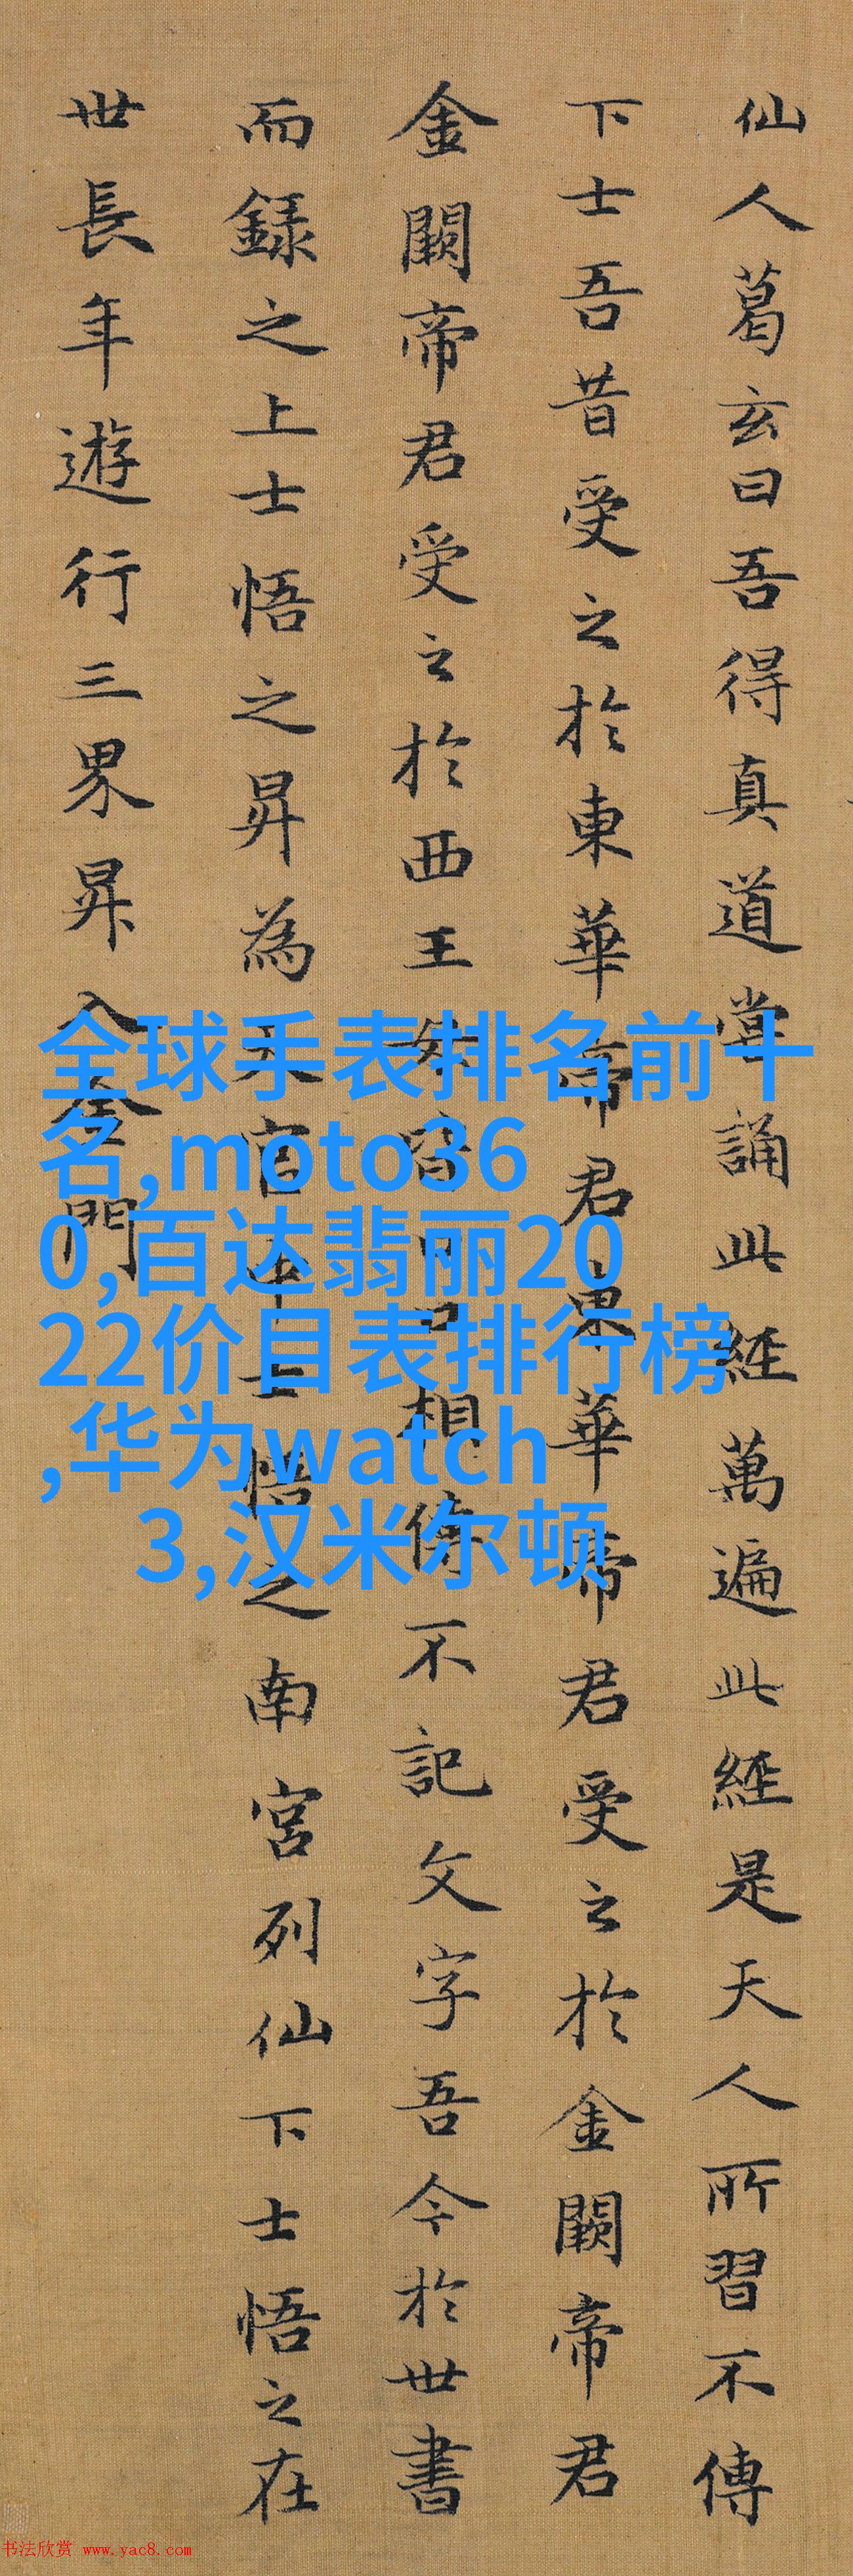 仙人葛玄曰吾得真道當誦此經萬遍此經是天人所習不傳
下士吾昔受之於東華帝君東華帝君受之於金闕帝君
金闕帝君受之於西王母皆口口相傳不記文字吾今於世書
而録之上士悟之昇為天官中士悟之南宮列仙下士悟之在
世長年遊行三界昇入金門
全球手表排名前十
名,moto36
0,百达翡丽20
22价目表排行榜
,华为watch
3,汉米尔顿
书法欣赏 www.yac8.com